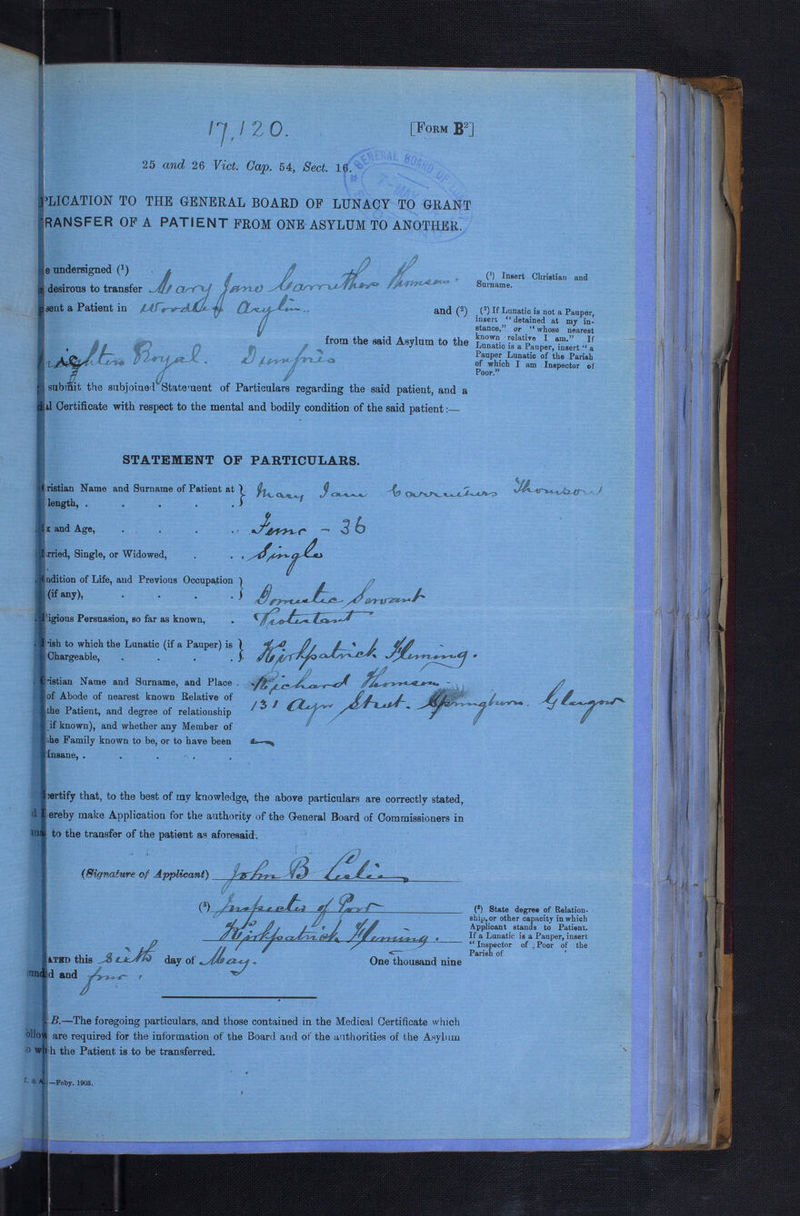 17,120. [FORM B²]
25 and 26 Vict. Cap. 54, Sect. 16.
GENERAL BOARD OF
7 MAY
PLICATION TO THE GENERAL BOARD OF LUNACY TO GRANT
TRANSFER OF A PATIENT FROM ONE ASYLUM TO ANOTHER.
e undersigned (¹)
desirous to transfer Mary Jane Carruthers Thomson
(¹) Insert Christian and
Surname.
sent a Patient in Asylum and (²)
from the said Asylum to the
Crichton Royal. Dumfries
(²) If Lunatic is not a Pauper,
insert "detained at my in-
stance," or "whose nearest
known relative I am." If
Lunatic is a Pauper, insert "a
Pauper Lunatic of the Parish
of which I am Inspector of
Poor."
submit the subjoined Statement of Particulars regarding the said patient, and a
al Certificate with respect to the mental and bodily condition of the said patient:—
STATEMENT OF PARTICULARS.
ristian Name and Surname of Patient at
length, . . . . . Mary Jane Carruthers Thomson
x and Age, . . . . Female - 36
rried, Single, or Widowed, . . . Single
ndition of Life, and Previous Occupation
(if any), . . . . Domestic Servant
ligious Persuasion, so far as known, . Protestant
rish to which the Lunatic (if a Pauper) is
Chargeable, . . . . Kirkpatrick Fleming.
ristian Name and Surname, and Place . Richard Thomson
of Abode of nearest known Relative of
the Patient, and degree of relationship 131 Ayr Street. Springburn. Glasgow
if known), and whether any Member of
the Family known to be, or to have been
Insane, . . . . .
certify that, to the best of my knowledge, the above particulars are correctly stated,
d I hereby make Application for the authority of the General Board of Commissioners in
to the transfer of the patient as aforesaid.
(Signature of Applicant) John B Leslie
(³) Inspector of Poor
Kirkpatrick Fleming.
(³) State degree of Relation-
ship, or other capacity in which
Applicant stands to Patient.
If a Lunatic is a Pauper, insert
"Inspector of Poor of the
Parish of "
ATED this Sixth day of May. One thousand nine
hundred and four.
B.—The foregoing particulars, and those contained in the Medical Certificate which
follow are required for the information of the Board and of the authorities of the Asylum
o which the Patient is to be transferred.
—Feby. 1903.